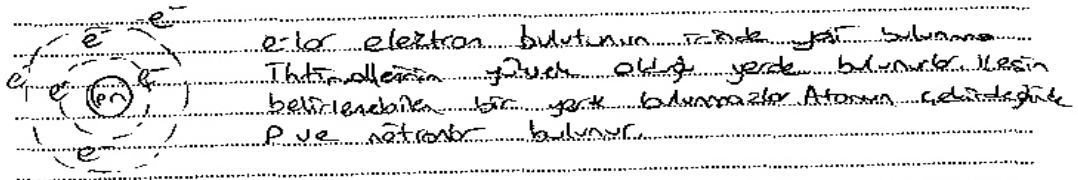 e⁻
e⁻
e⁻
e⁻ e⁻
pn
e⁻
e-lar elektron bulutunun içinde yani bulunma
İhtimallerinin yüksek olduğu yerde bulunurlar. Kesin
belirlenebilen bir yerde bulunmazlar Atomun çekirdeğinde
P ve nötronlar bulunur.